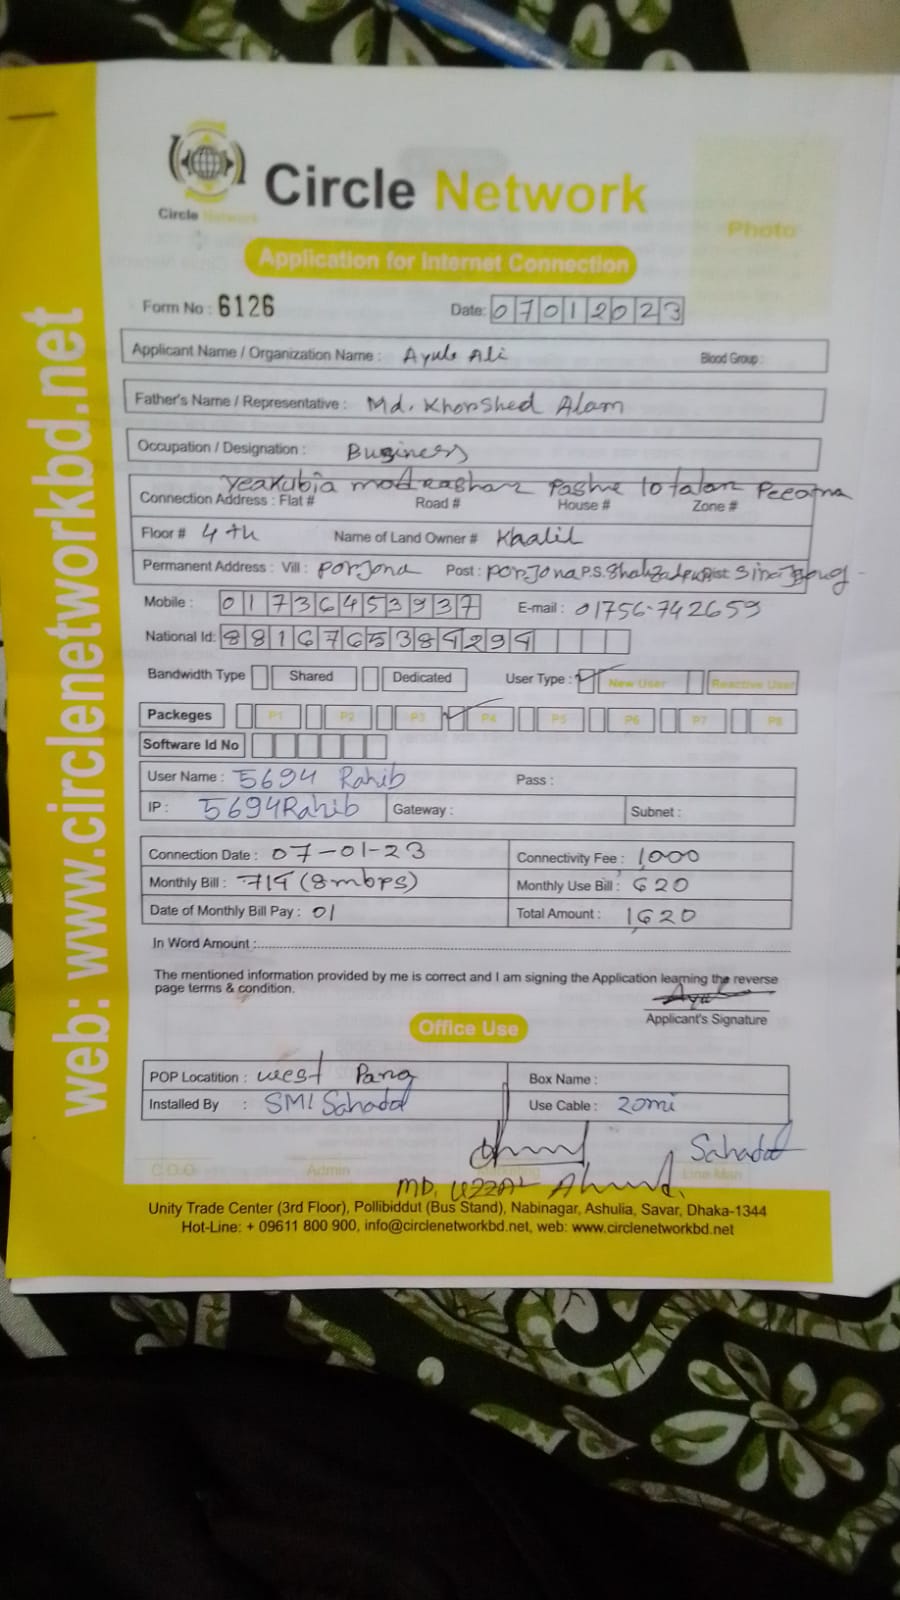 Circle Network
Circle Network
Photo
Application for Internet Connection
Form No : 6126 Date: 07012023
Applicant Name / Organization Name : Ayub Ali Blood Group :
Father's Name / Representative : Md. Khorshed Alam
Occupation / Designation : Business
yeakubia
Connection Address : Flat # Road # House # Zone #
Floor # 4th Name of Land Owner # Khalil
Permanent Address : Vill : Porjona Post : porjona P.S. Dist
Mobile : 01736453937 E-mail : 01756-742659
National Id: 8816765384294
Bandwidth Type Shared Dedicated User Type : New User Reactive User
Packeges P1 P2 P3 P4 P5 P6 P7 P8
Software Id No
User Name : 5694 Rahib Pass :
IP : 5694Rahib Gateway : Subnet :
Connection Date : 07-01-23 Connectivity Fee : 1,000
Monthly Bill : 714 (8mbps) Monthly Use Bill : 620
Date of Monthly Bill Pay : 01 Total Amount : 1,620
In Word Amount :
The mentioned information provided by me is correct and I am signing the Application learning the reverse
page terms & condition.
Applicant's Signature
Office Use
POP Locatition : west Box Name :
Installed By : SMI Sahadat Use Cable : 20mi
Sahadat
C.O.O Admin Marketing Line Man
MD. UZZAL Ahmed.
Unity Trade Center (3rd Floor), Pollibiddut (Bus Stand), Nabinagar, Ashulia, Savar, Dhaka-1344
Hot-Line: + 09611 800 900, info@circlenetworkbd.net, web: www.circlenetworkbd.net
web: www.circlenetworkbd.net